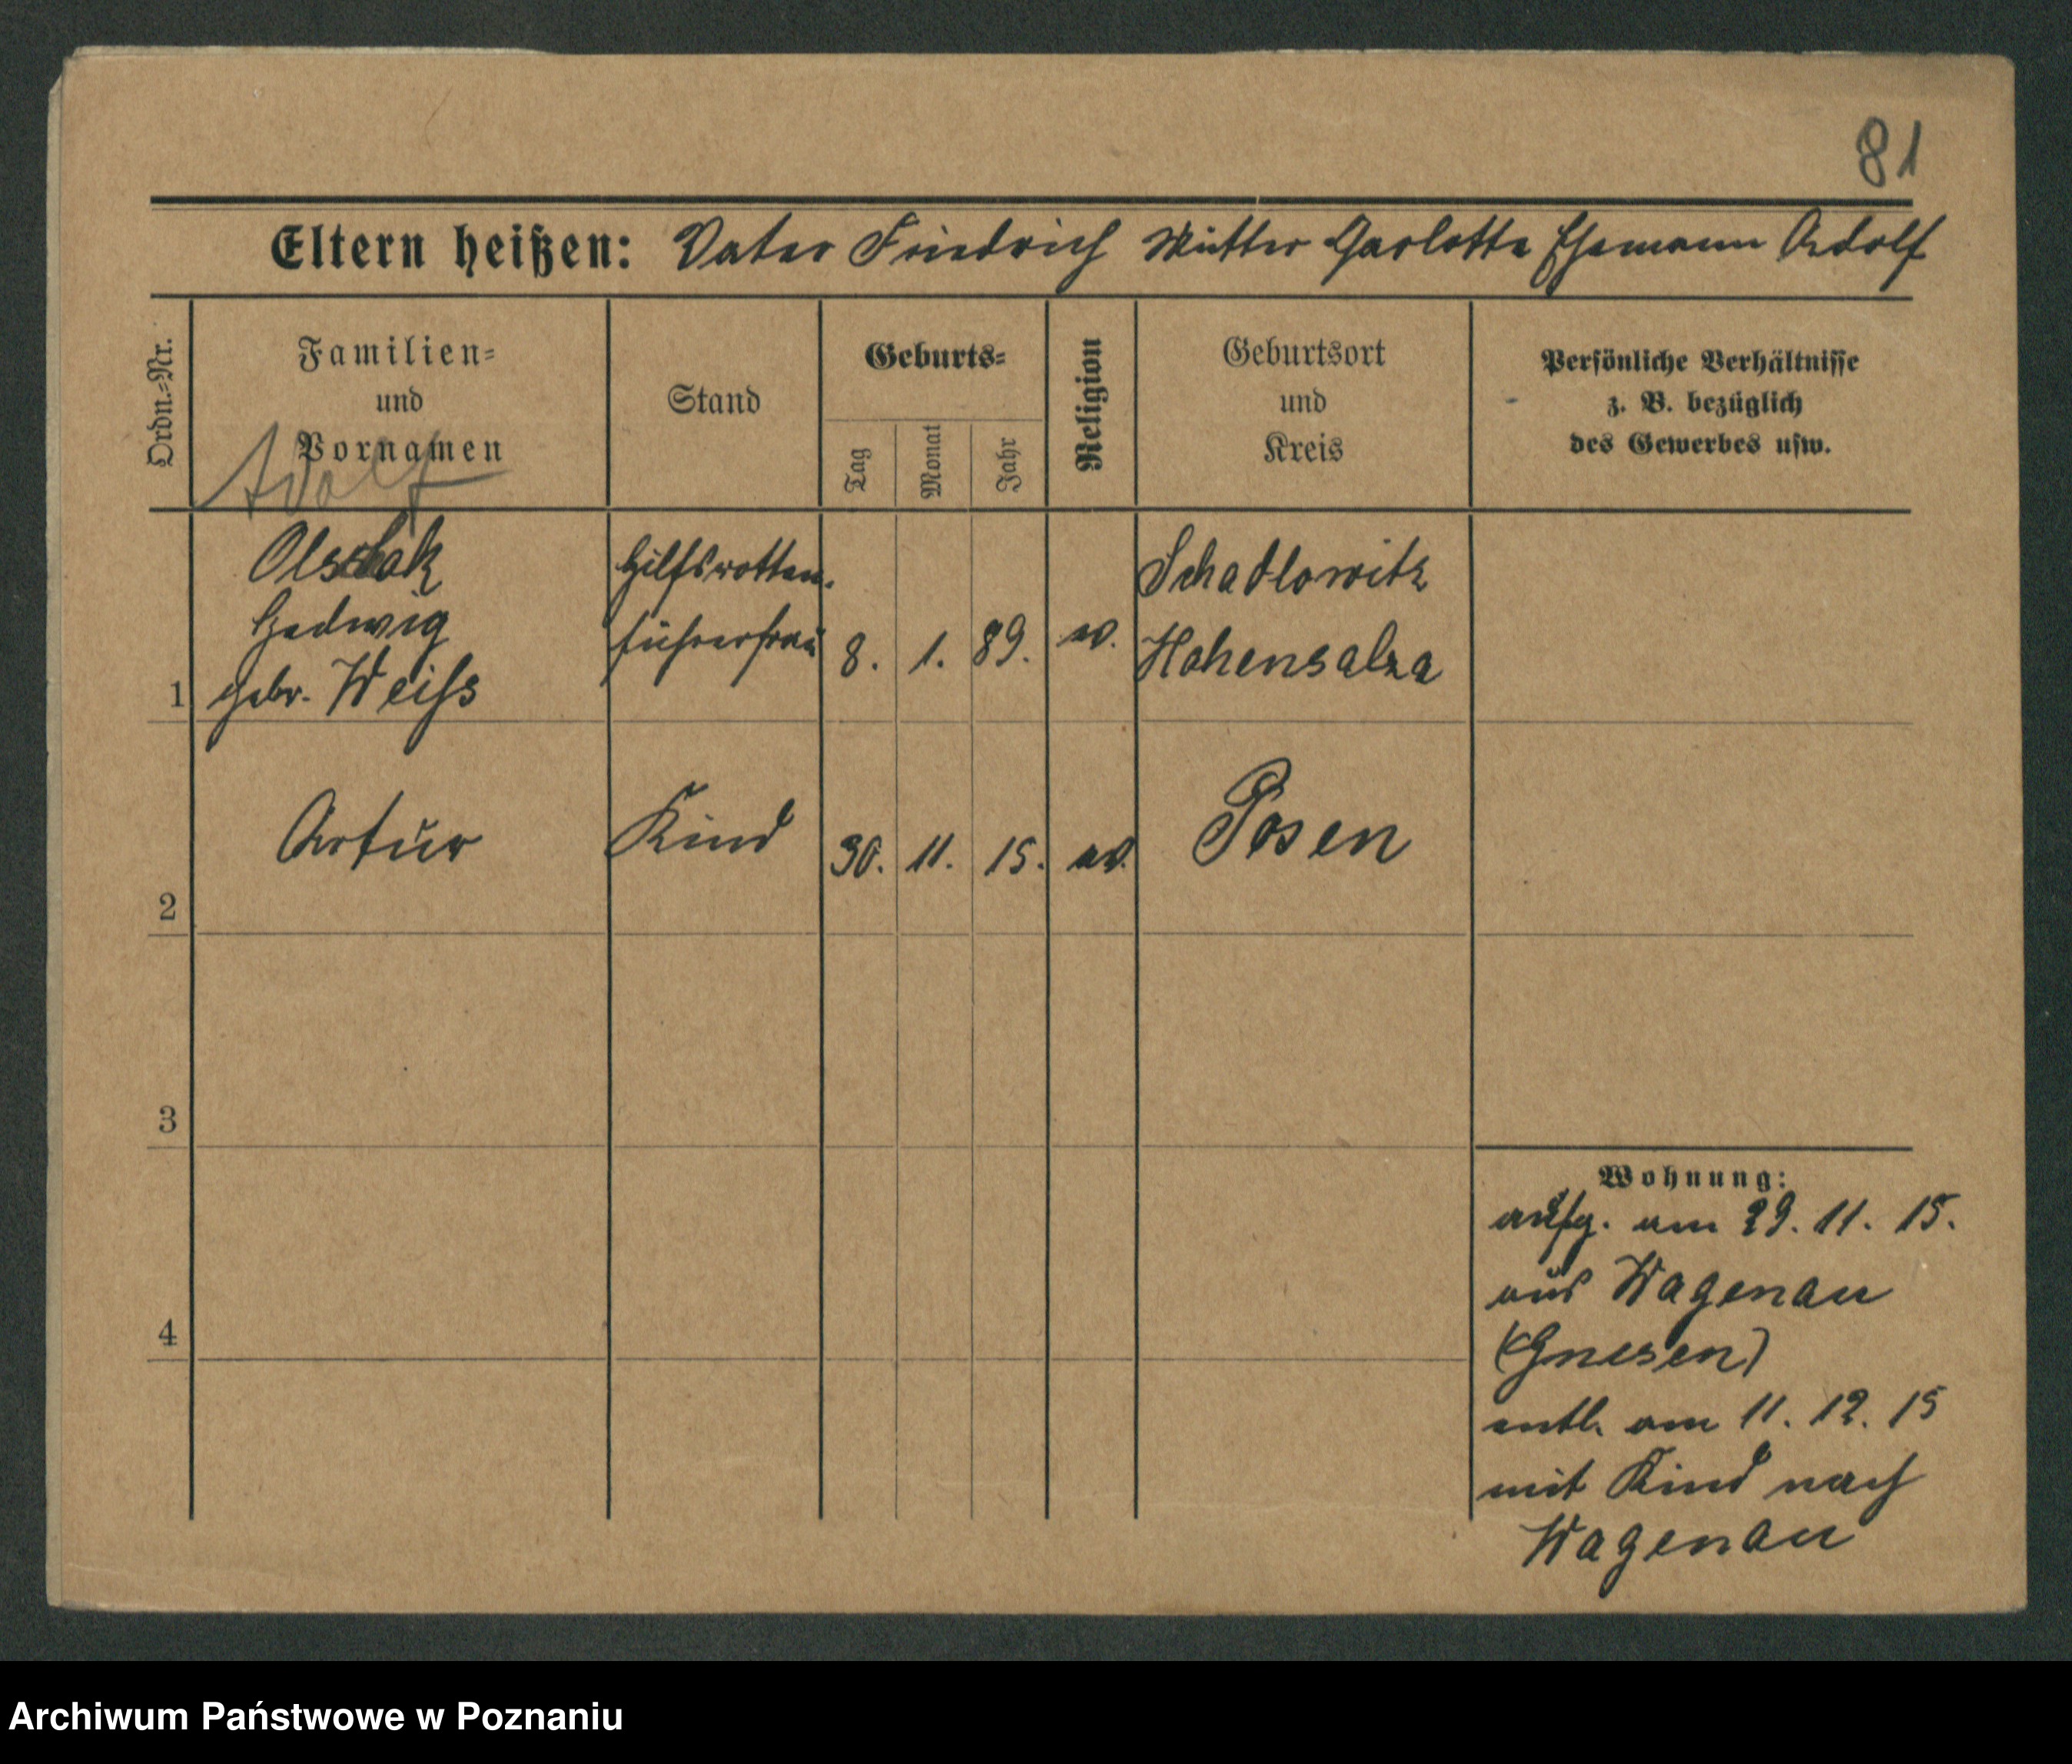 81
Eltern heißen: Vater Friedrich Mutter Garlotte Ehemann Adolf
Ordn.-Nr.
Familien-
und
Vornamen
Stand
Geburts-
Tag
Monat
Jahr
Religion
Geburtsort
und
Kreis
Persönliche Verhältnisse
z. B. bezüglich
des Gewerbes usw.
Adolf
1
Hedwig
gebr. Weiss
Hilfsrotten-
führerfrau
8. 1. 89. ev.
Schadlowitz
Hohensalza
2
Artur
Kind
30. 11. 15. ev.
Posen
3
4
Wohnung:
aufg. am 29. 11. 15.
aus Wagenau
(Gnesen)
entl. am 11. 12. 15
mit Kind nach
Wagenau
Archiwum Państwowe w Poznaniu